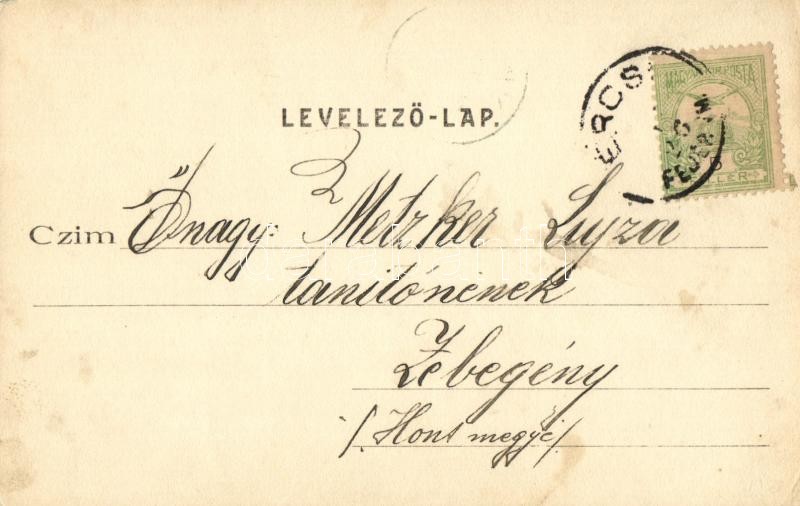 LEVELEZŐ-LAP.
ÉRCSI
FEJÉR M
MAGYAR KIR. POSTA
Czim Őnagy: Metzker Lujza
tanítónénenek
Zebegény
/: Hont megye /